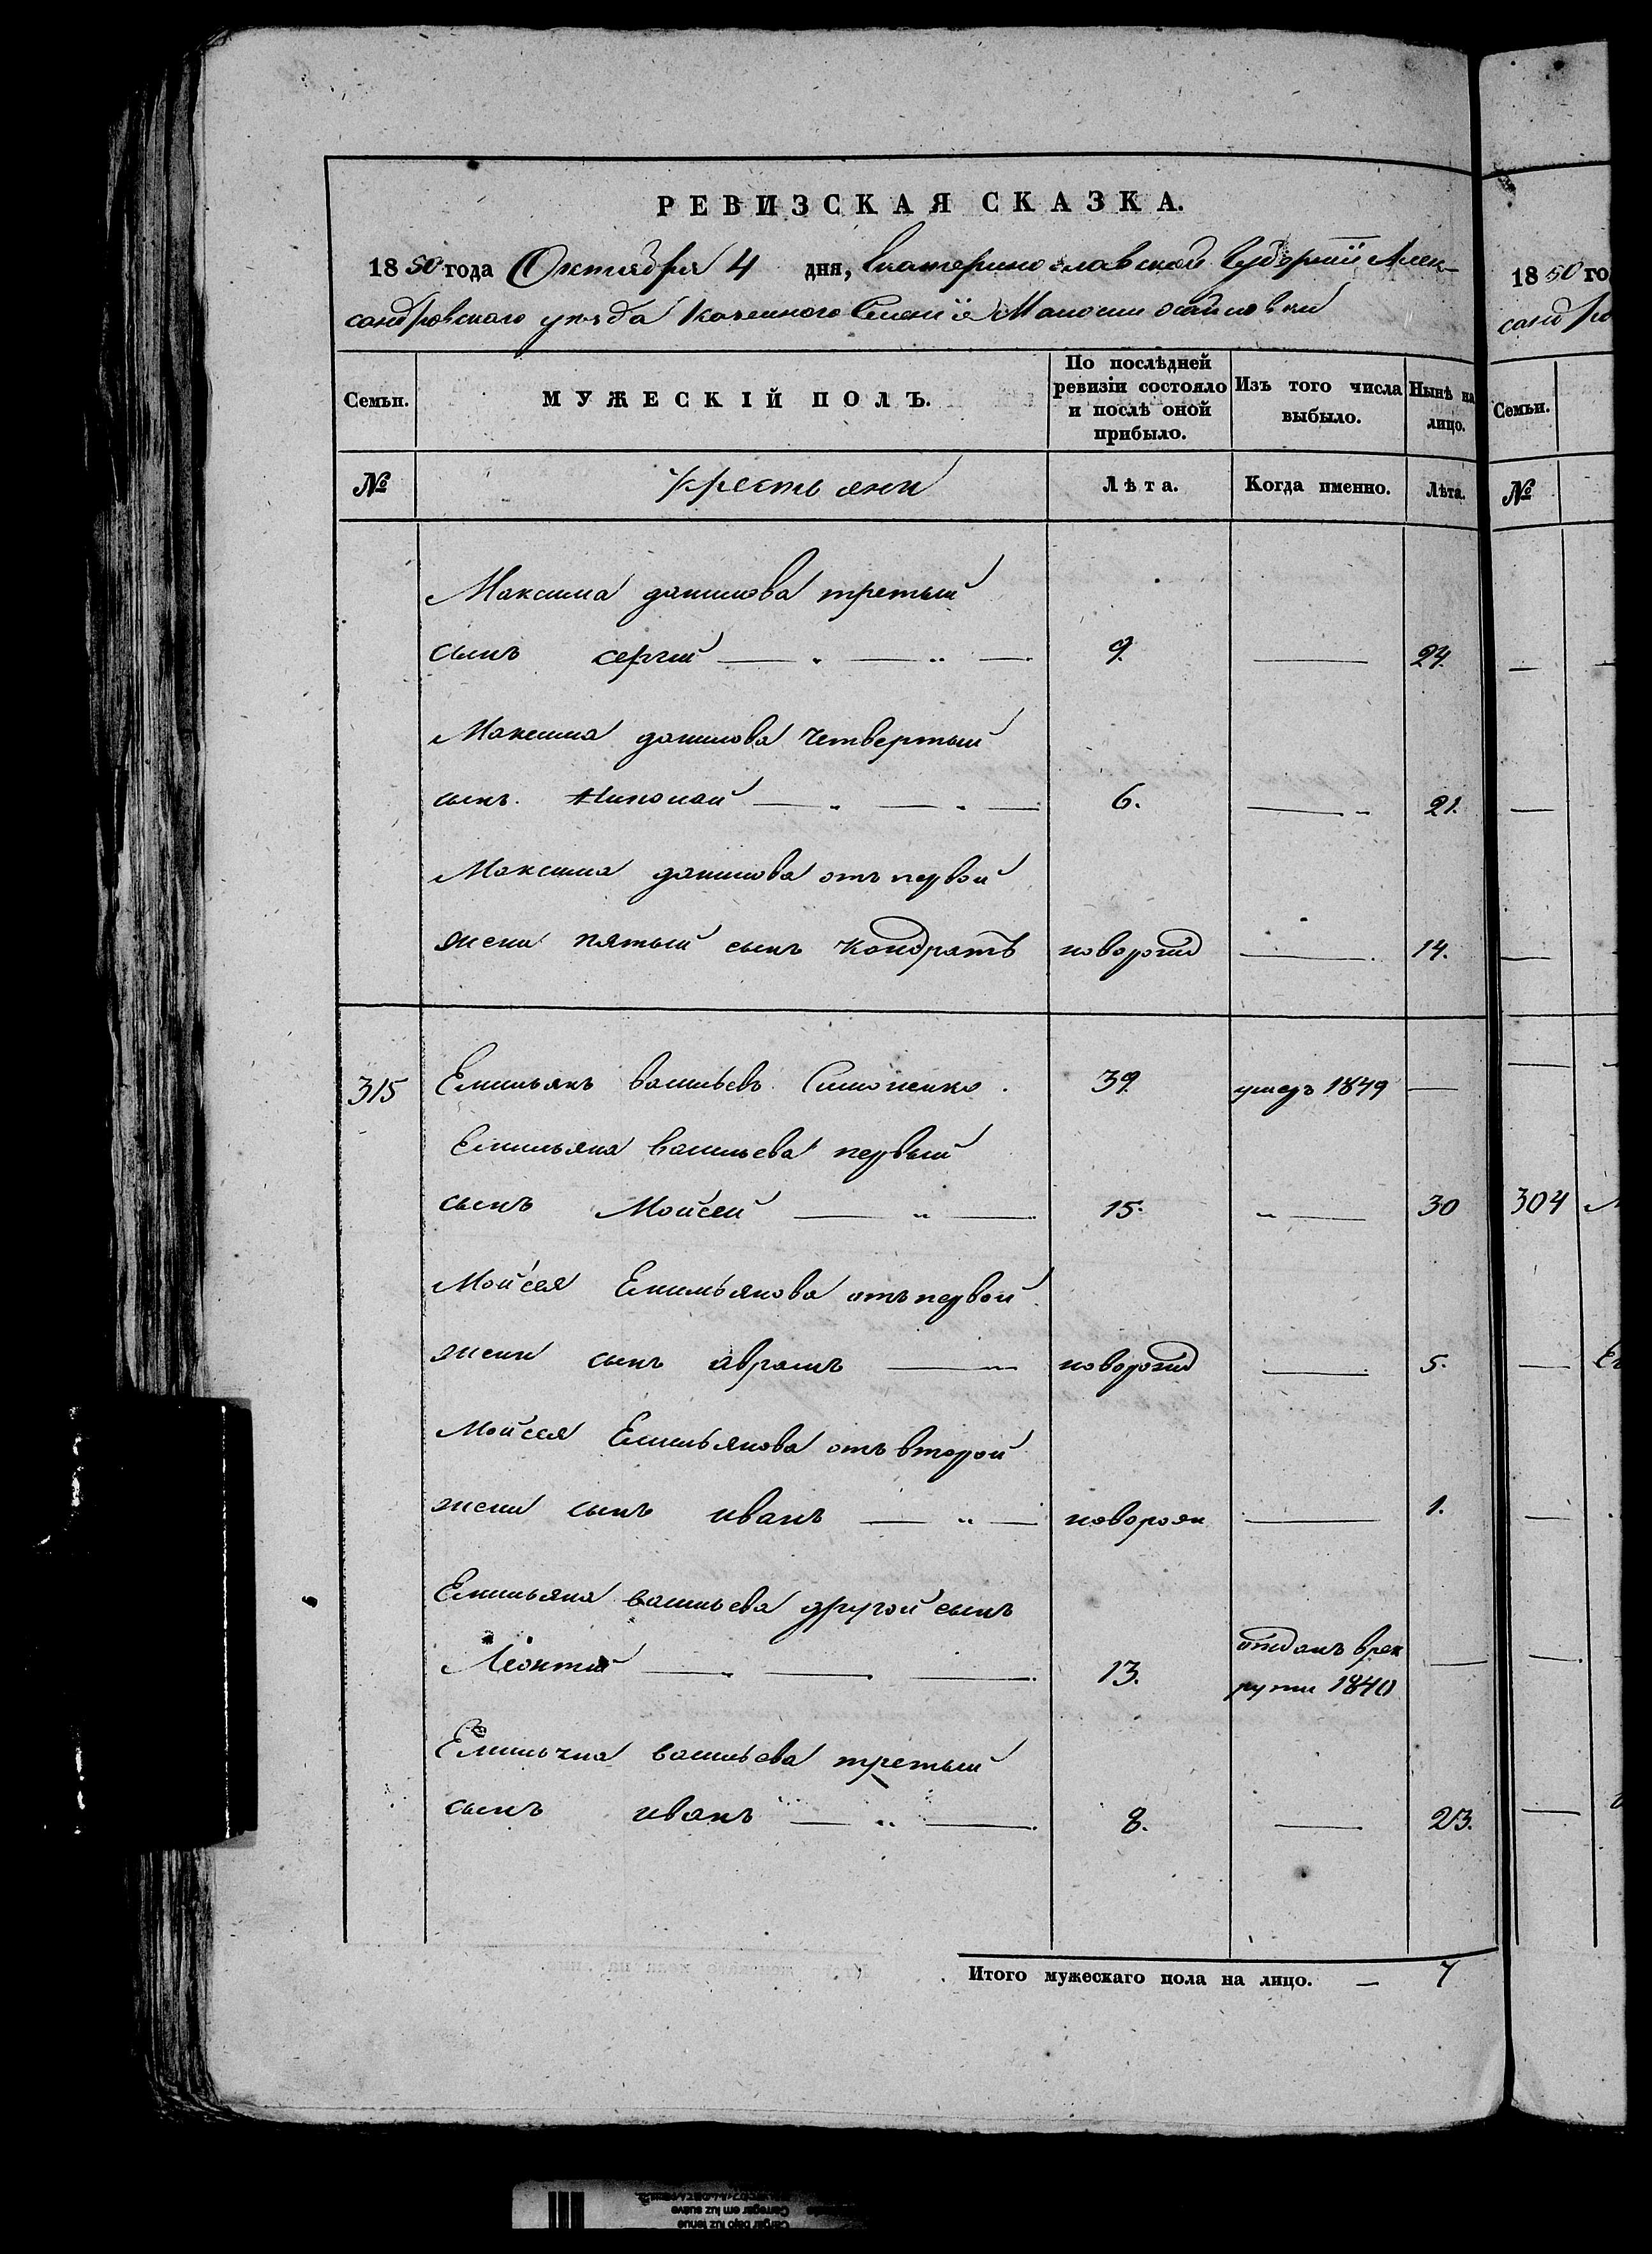 РЕВИЗСКАЯ СКАЗКА.
1850 года Октября 4 дня, Екатеринославской Губернiи Алек-
сандровскаго уѣзда Казенного Селенiя
Семьи.
МУЖЕСКІЙ ПОЛЪ.
По послѣдней
ревизіи состояло
и послѣ оной
прибыло.
Изъ того числа
выбыло.
Нынѣ на
лицо.
№
крестьяни
Лѣта.
Когда именно.
Лѣта.
Максима данилова третьий
сынъ сергий 9. 24.
Максима данилова четвертый
сынъ. Николай 6. 21.
Максима данилова отъ первой
жены пятый сынъ Кондратъ новорожд 14.
315 Емильянъ васильевъ Симоненко. 39 умеръ 1849
Емильяна васильева первый
сынъ Мойсей 15. 30
Мойсея Емильянова отъ первой
жены сынъ аврамъ новорожд 5.
Мойсея Емильянова отъ второй
жены сынъ иванъ новорож 1.
Емильяна васильева другой сынъ
Леонтий 13. отданъ врек
руты 1840
Емильяна васильева третьий
сынъ иванъ 8. 23.
Итого мужескаго пола на лицо. — 7
1850 го
санд
Семьи.
№
304